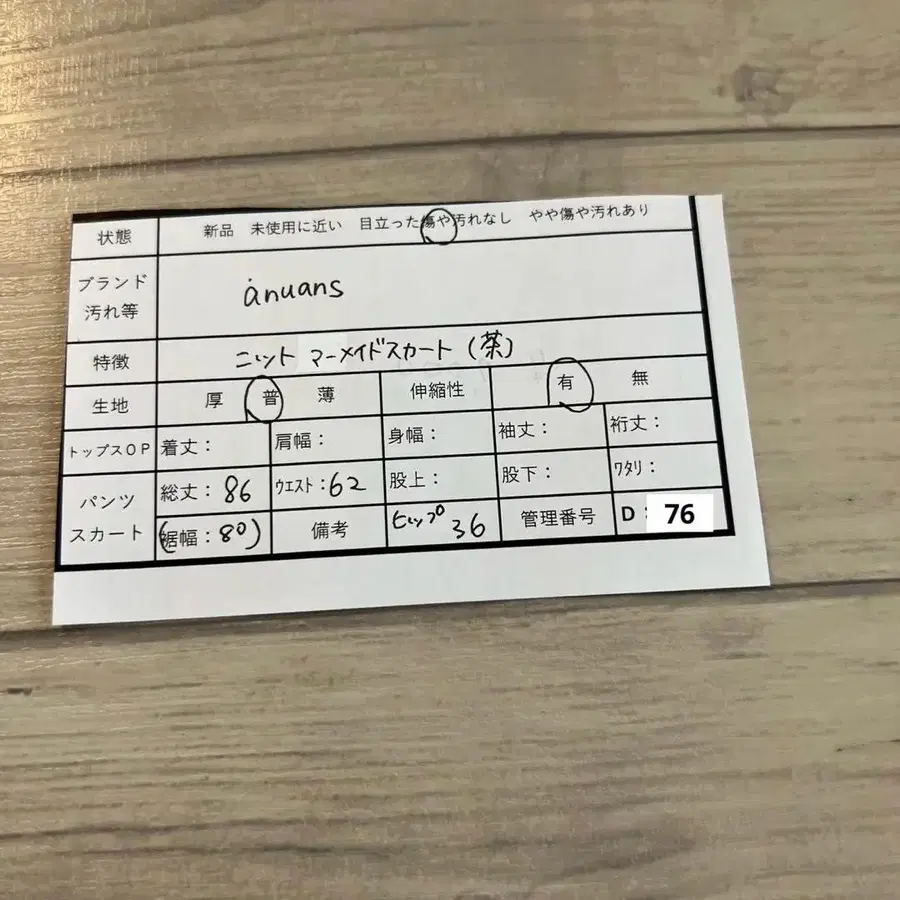 状態 新品 未使用に近い 目立った傷や汚れなし やや傷や汚れあり
ブランド
汚れ等
ånuans
特徴 ニット マーメイドスカート (茶)
生地 厚 普 薄 伸縮性 有 無
トップスOP 着丈: 肩幅: 身幅: 袖丈: 裄丈:
パンツ
スカート
総丈: 86 ウエスト: 62 股上: 股下: ワタリ:
(裾幅: 80) 備考 ヒップ 36 管理番号 D: 76